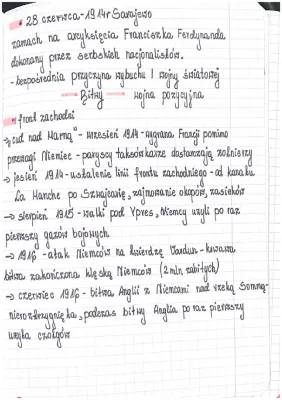 • 28 czerwca - 1914r Sarajewo
zamach na arcyksięcia Franciszka Ferdynanda
dokonany przez serbskich nacjonalistów.
- bezpośrednia przyczyna wybuchu I wojny światowej
Bitwy wojna pozycyjna
• front zachodni
→ "cud nad Marną" - wrzesień 1914 - wygrana Francji pomimo
przewagi Niemiec - paryscy taksówkarze dostarczają żołnierzy
→ jesień 1914 - ustalenie linii frontu zachodniego - od kanału
La Manche po Szwajcarię, zajmowanie okopów, zasieków
→ sierpień 1915 - walki pod Ypres, Niemcy użyli po raz
pierwszy gazów bojowych
→ 1916 - atak Niemców na twierdzę Verdun - krwawa
bitwa zakończona klęską Niemców (2 mln zabitych)
→ czerwiec 1916 - bitwa Anglii z Niemcami nad rzeką Sommą -
nierozstrzygnięta, podczas bitwy Anglia po raz pierwszy
użyła czołgów